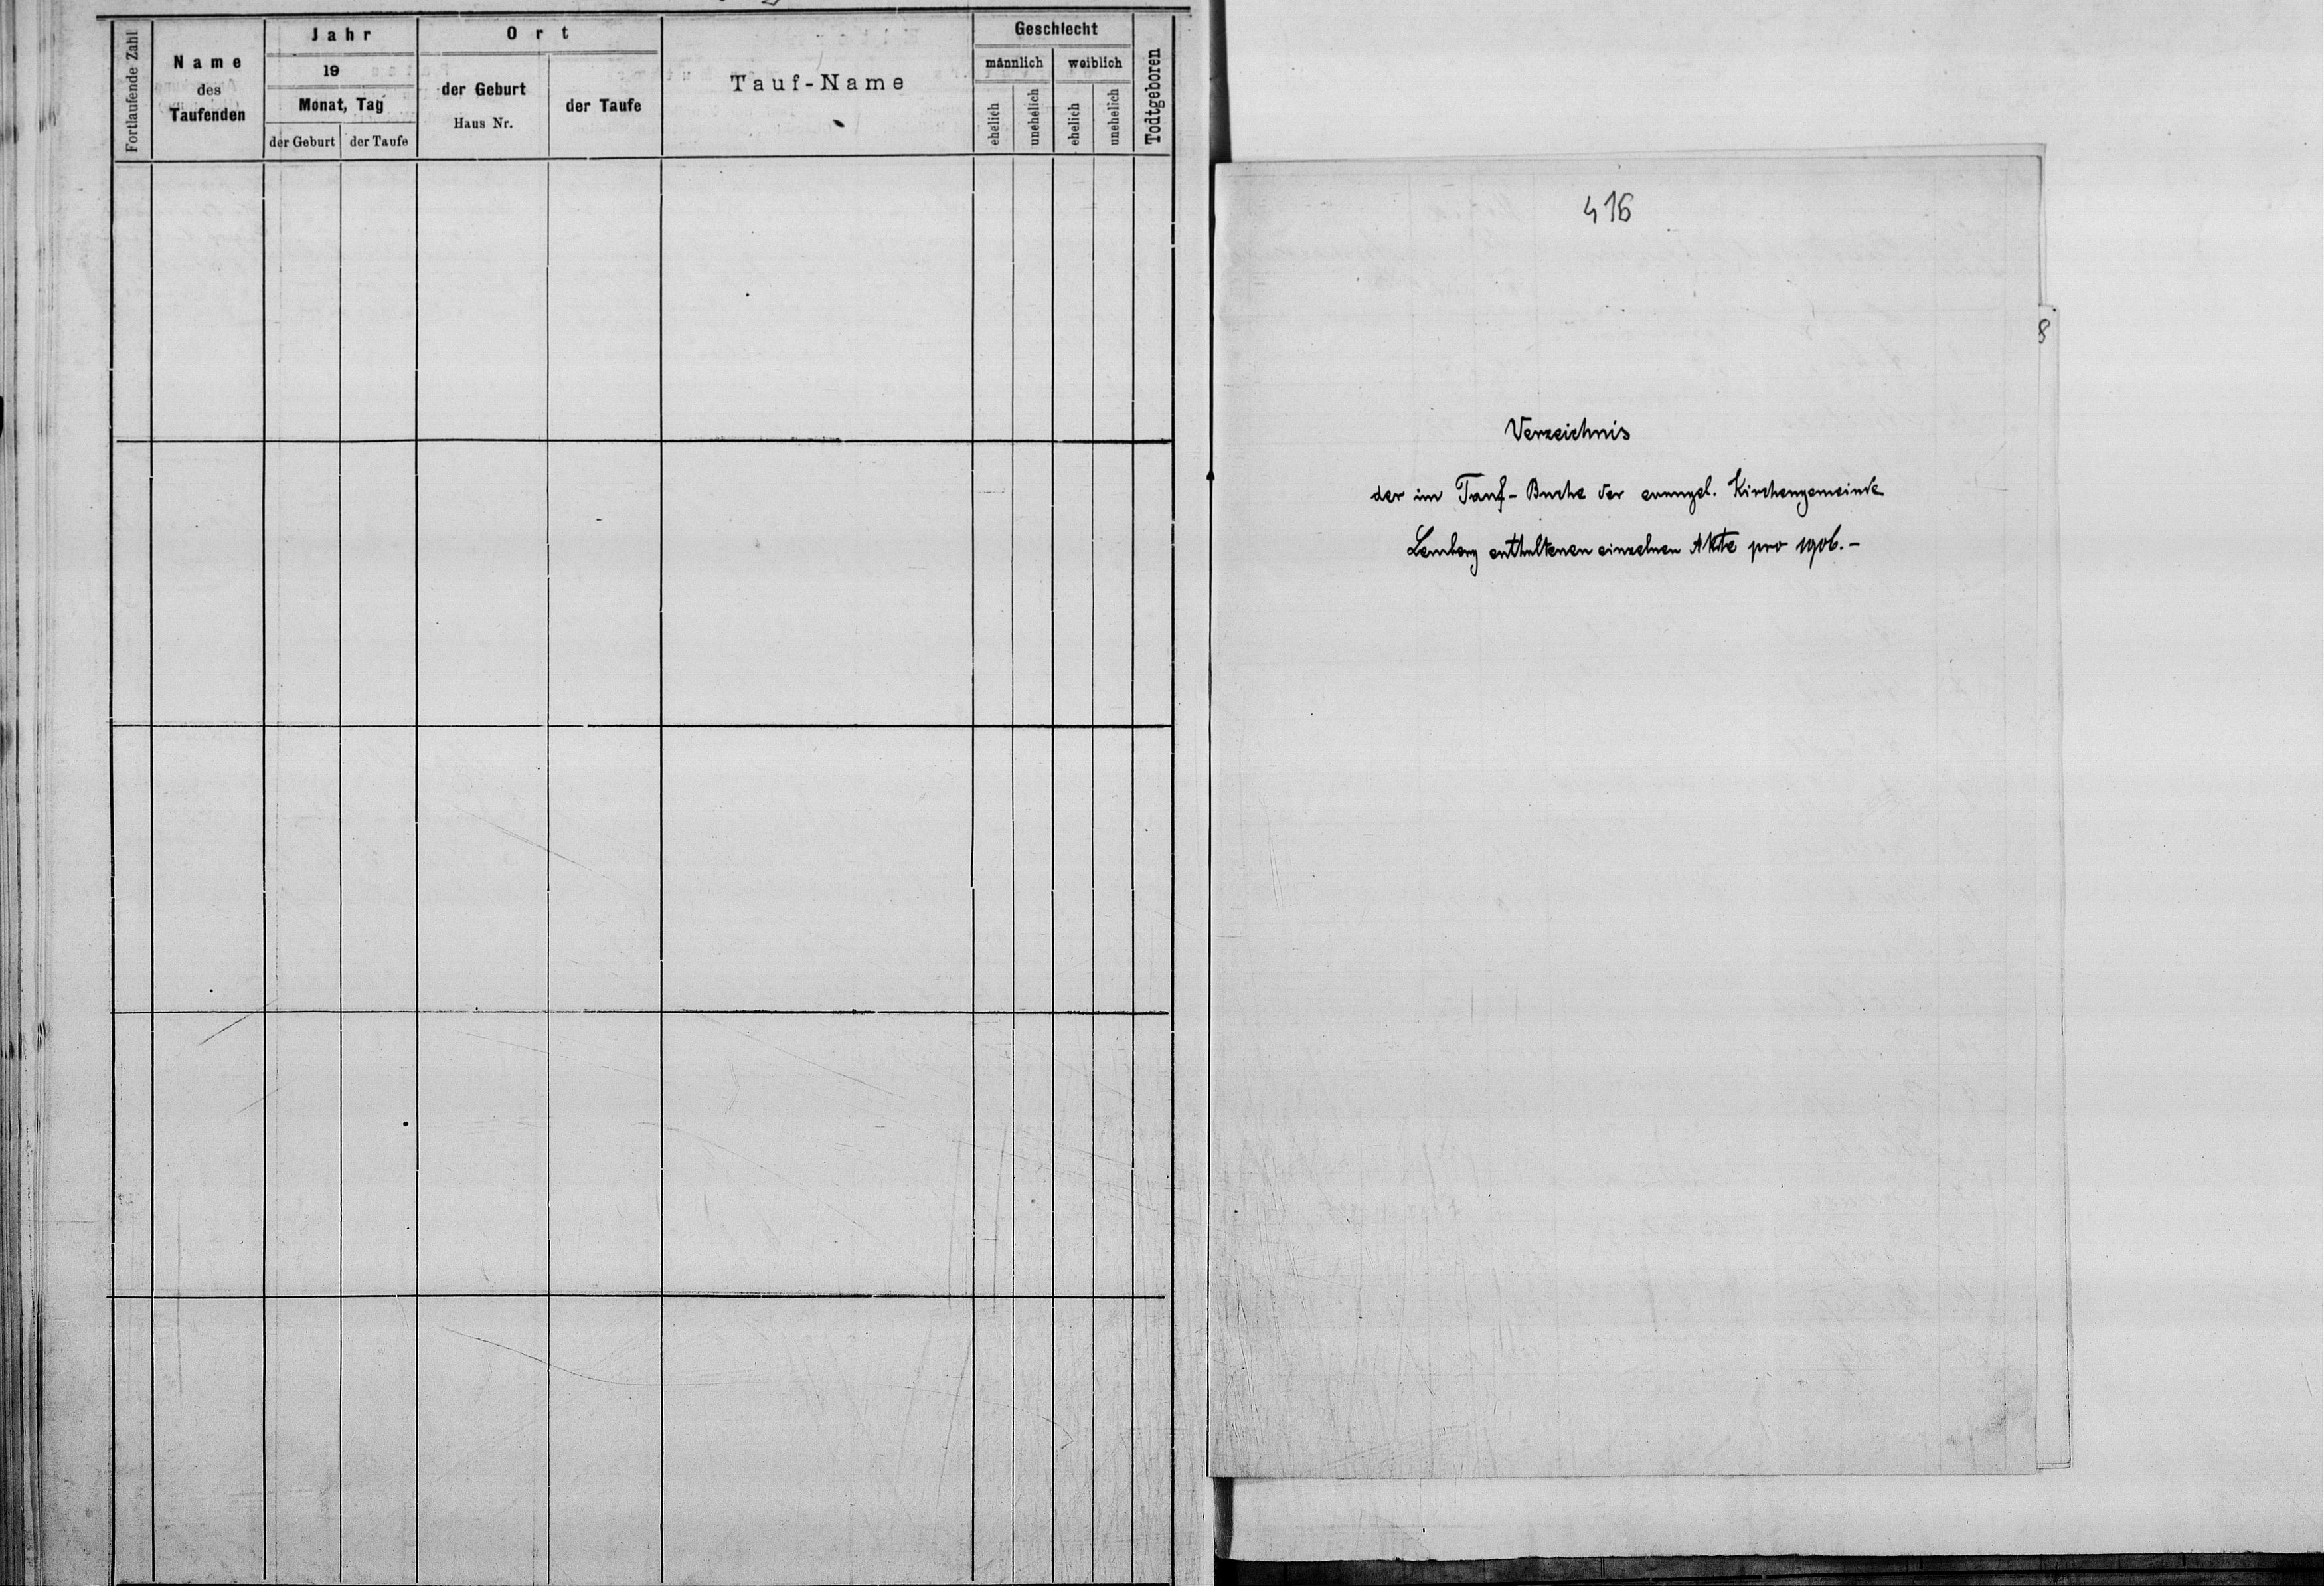 Fortlaufende Zahl
Name
des
Taufenden
Jahr
19
Monat, Tag
der Geburt
der Taufe
Ort
der Geburt
Haus Nr.
der Taufe
Tauf-Name
Geschlecht
männlich
weiblich
ehelich
unehelich
ehelich
unehelich
Todtgeboren
416
8
Verzeichnis
der im Tauf-Buche der evangel. Kirchengemeinde
Lemberg enthaltenen einzelnen Akte pro 1906.-